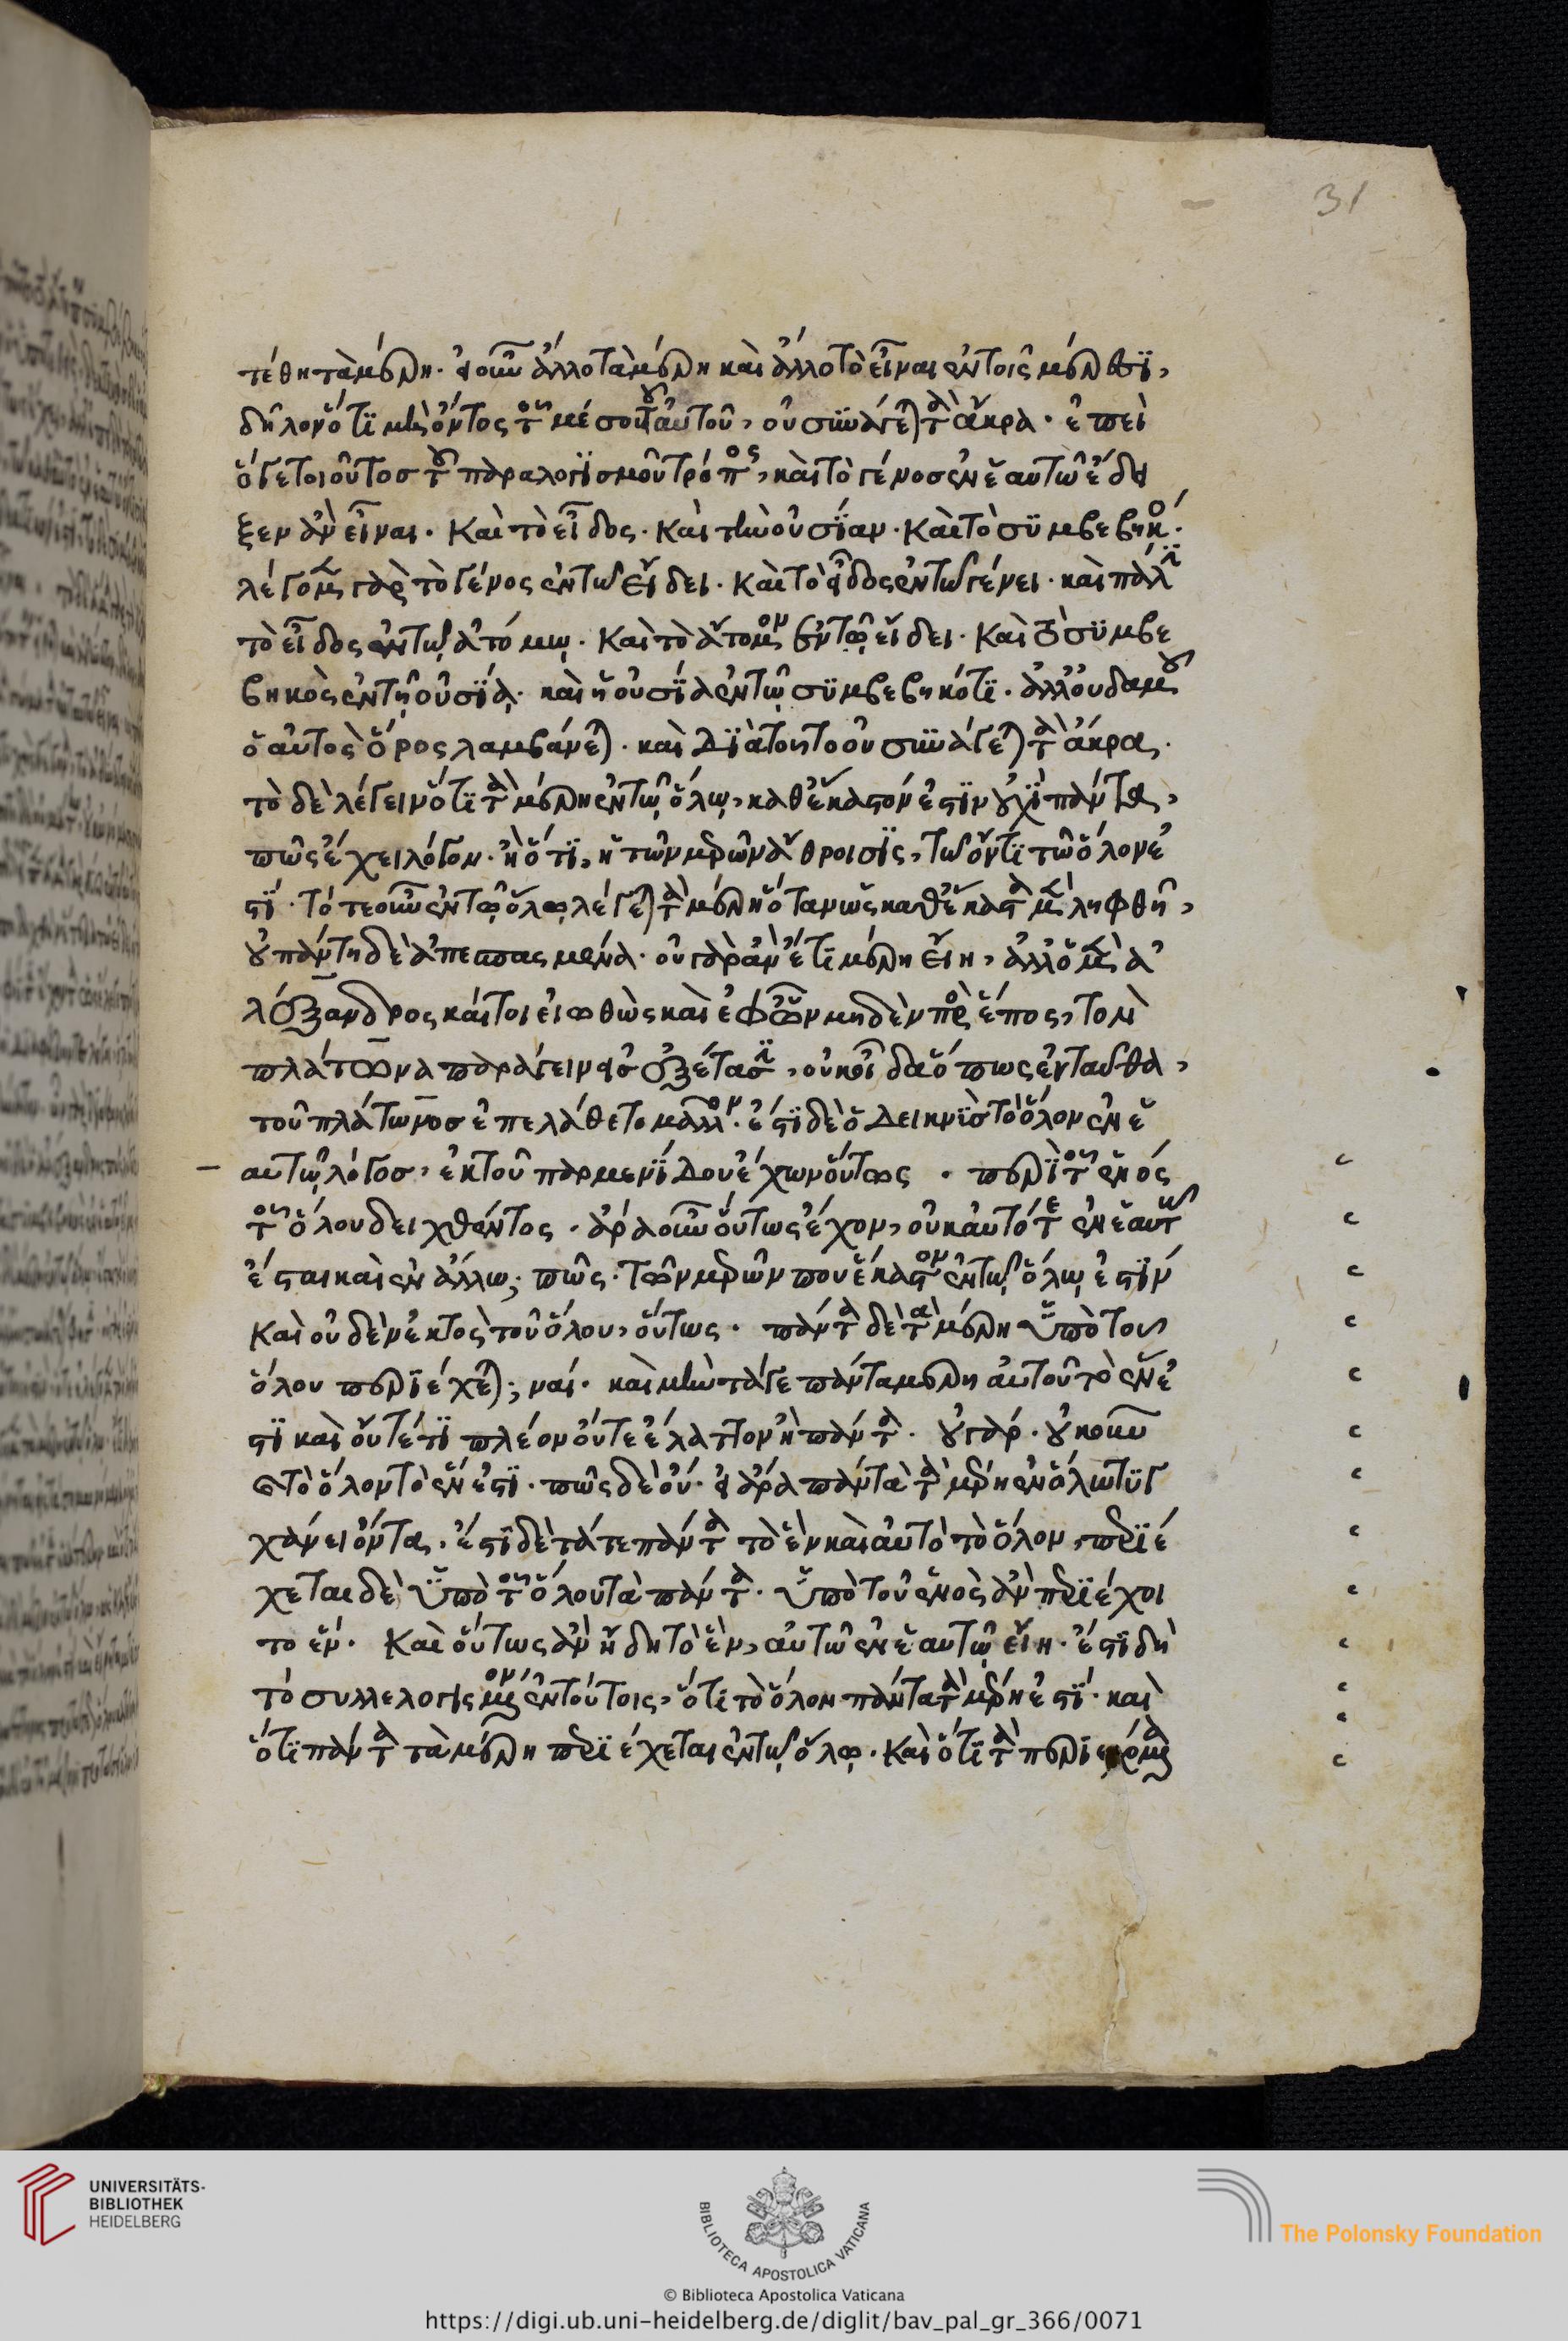 31
τέθη τὰ μέρη· εἰ οὖν ἄλλο τὰ μέρη καὶ ἄλλο τὸ εἶναι ἐν τοῖς μέρεσϊ,
δῆλον ὅτϊ μὴ ὄντος τοῦ μέσου τοῦ αὐτοῦ, οὐ συνάγεται τὰ ἄκρα· ἐπεὶ
ὅγε τοιοῦτος τοῦ παραλογϊσμοῦ τρόπος, καὶ τὸ γένος ἐν ἑαυτῷ ἔδει
ξεν ἂν εἶναι· Καὶ τὸ εἶδος· Καὶ τὴν οὐσΐαν· Καὶ τὸ συμβεβηκός·
λέγομεν γὰρ τὸ γένος ἐν τῷ εἴδει· Καὶ τὸ εἶδος ἐν τῷ γένει· καὶ πάλϊν
τὸ εἶδος ἐν τῷ ἀτόμῳ· Καὶ τὸ ἄτομον ἐν τῷ εἴδει· Καὶ τὸ συμβε
βηκὸς ἐν τῇ οὐσΐᾳ· καὶ ἡ οὐσΐα ἐν τῷ συμβεβηκότϊ· ἀλλ' οὐδαμοῦ
ὁ αὐτὸς ὅρος λαμβάνεται· καὶ Διὰ τοῦτο οὐ συνάγεται τὰ ἄκρα·
τὸ δὲ λέγειν ὅτϊ τὰ μέρη ἐν τῷ ὅλῳ, καθ' ἕκαστόν ἐστϊν οὐχϊ πάντα,
πῶς ἔχει λόγον· ἢ ὅτϊ, ἡ τῶν μερῶν ἄθροισϊς, τῷ ὄντϊ τῶ ὅλον ἐ
στϊ· Τότε οὖν ἐν τῷ ὅλῳ λέγεται τὰ μέρη ὅταν ὡς καθ' ἕκαστα μὲν ληφθῇ,
οὐ πάντη δὲ ἀπεσπασμένα· οὐ γὰρ ἂν ἔτϊ μέρη εἴη, ἀλλ' ὁ μὲν ἀ
λέξανδρος καίτοι εἰωθὼς καὶ ἐφ' ὧν μηδὲν πρὸς ἔπος, τὸν
πλάτωνα παράγειν εἰς ἐξέτασϊν, οὐκ οἶδα ὅπως ἐνταῦθα,
τοῦ πλάτωνος ἐπελάθετο μᾶλλον· ἔστϊ δὲ ὁ Δεικνϊς τὸ ὅλον ἐν ἑ
αυτῷ λόγος, ἐκ τοῦ παρμενΐΔου ἔχων οὕτως · περὶ τοῦ ἑνός
τοῦ ὅλου δειχθέντος · ἆρα οὖν οὕτως ἔχον, οὐκ αὐτό τε ἐν ἑαυτῷ
ἔσται καὶ ἐν ἄλλω; πῶς· Τῶν μερῶν που ἕκαστον ἐν τῷ ὅλῳ ἐστϊν
Καὶ οὐδὲν ἐκτὸς τοῦ ὅλου, οὕτως· πάντα δὲ τὰ μέρη ὑπὸ τοῦ
ὅλου περϊέχεται; ναί· καὶ μὴν τά γε πάντα μέρη αὐτοῦ τὸ ἕν ἐ
στϊ καὶ οὔτέ τϊ πλέον οὔτε ἔλαττον ἢ πάντα· οὐ γάρ· οὐκοῦν
Τὸ ὅλον τὸ ἕν ἐστϊ· πῶς δὲ οὔ· εἰ ἄρα πάντα τὰ μέρη ἐν ὅλω τυγ
χάνει ὄντα, ἔστϊ δὲ τά τε πάντα τὸ ἓν καὶ αὐτὸ τὸ ὅλον, περϊέ
χεται δὲ ὑπὸ τοῦ ὅλου τὰ πάντα· ὑπὸ τοῦ ἑνὸς ἂν περϊέχοι
το ἕν· Καὶ οὕτως ἂν ἤδη τὸ ἓν, αὐτῶ ἐν ἑαυτῷ εἴη· ἔστϊ δὴ
τὸ συλλελογισμένον ἐν τούτοις, ὅτϊ τὸ ὅλον πάντα τὰ μέρη ἐστϊ· καὶ
ὅτϊ πάντα τὰ μέρη περϊέχεται ἐν τῷ ὅλῳ· Καὶ ὅτϊ τὰ περϊεχόμενα
UNIVERSITÄTS-
BIBLIOTHEK
HEIDELBERG
BIBLIOTECA APOSTOLICA VATICANA
The Polonsky Foundation
© Biblioteca Apostolica Vaticana
https://digi.ub.uni-heidelberg.de/diglit/bav_pal_gr_366/0071